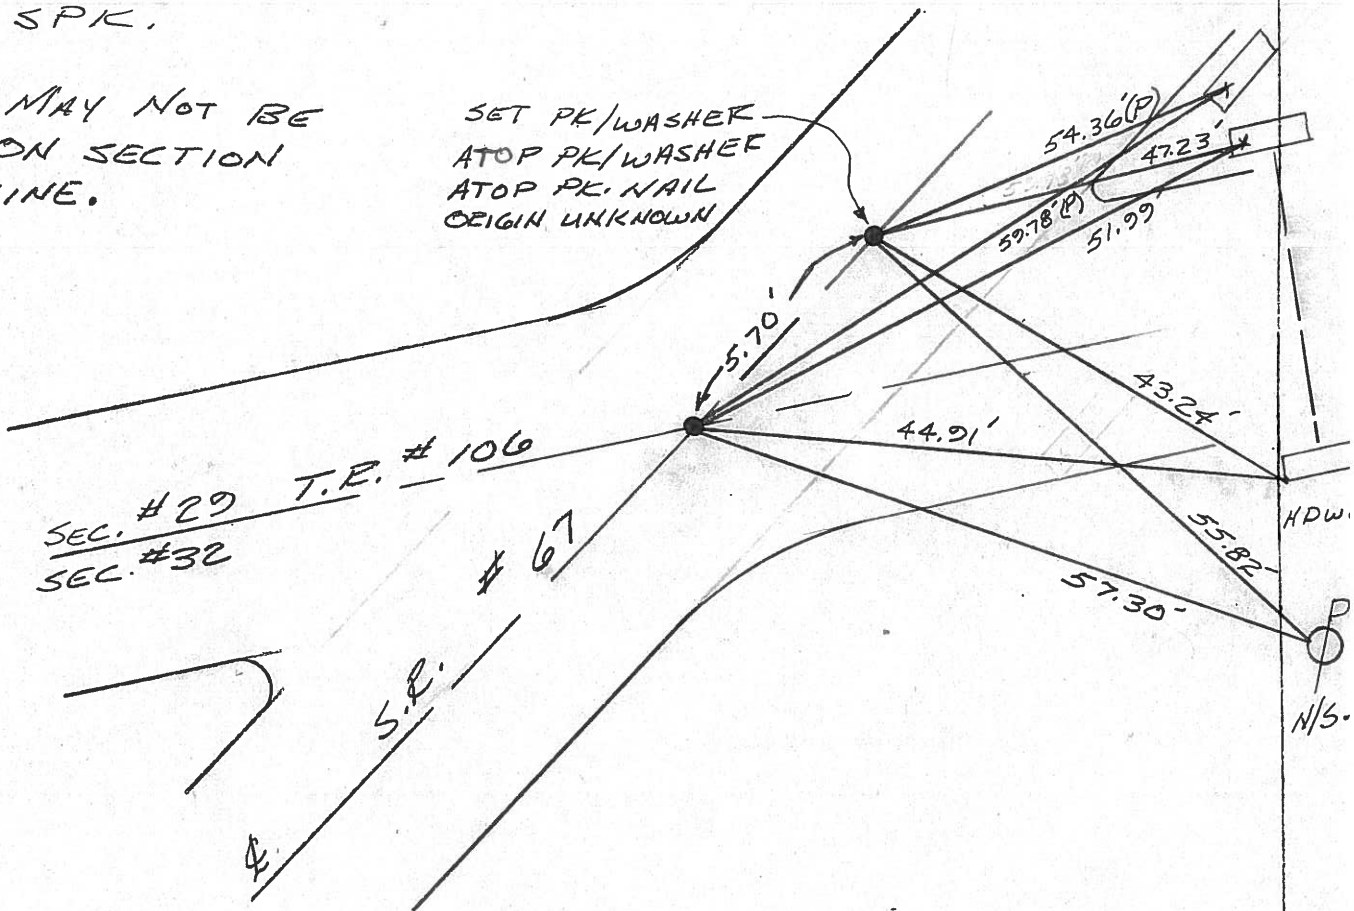 SPK.
MAY NOT BE
ON SECTION
INE.
SET PK/WASHER
ATOP PK/WASHER
ATOP PK. NAIL
ORIGIN UNKNOWN
54.36'(P)
47.23'
59.78'(P)
51.99'
5.70'
43.24'
44.91'
55.82'
57.30'
SEC. #29
T.R. #106
SEC. #32
S.R. #67
℄
HDW
P
N/S.